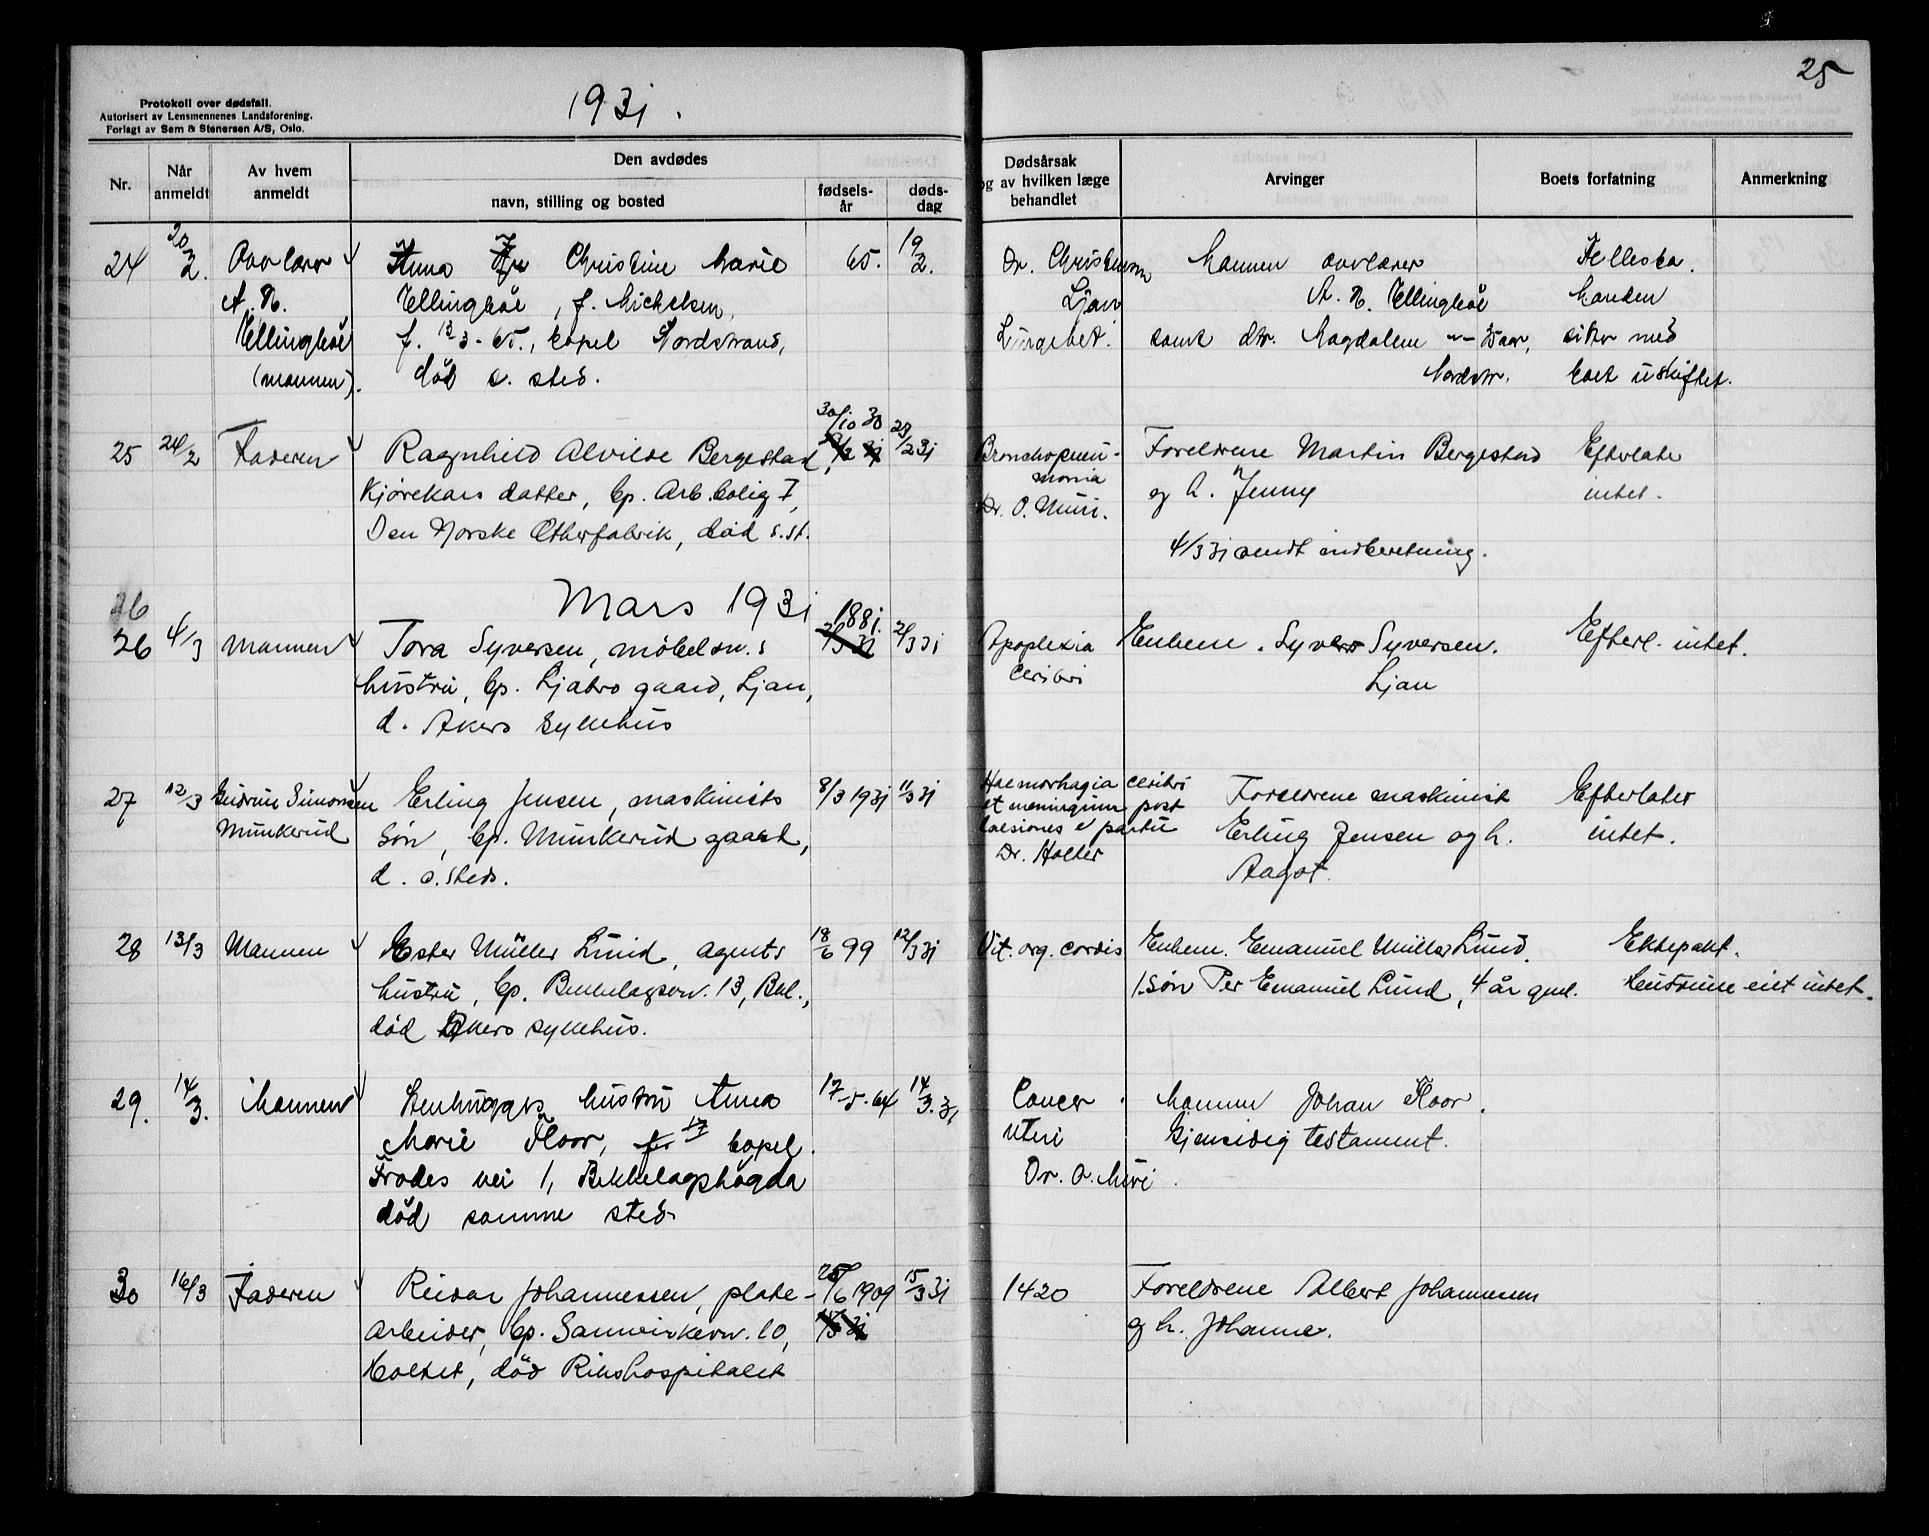 25
Protokoll over dødsfall.
Autorisert av Lensmennenes Landsforening.
Forlagt av Sem & Stenersen A/S, Oslo.
1931.
Nr.
Når anmeldt
Av hvem anmeldt
Den avdødes
navn, stilling og bosted
fødsels-år
døds-dag
Dødsårsak
og av hvilken læge
behandlet
Arvinger
Boets forfatning
Anmerkning
24
20/2.
A. N.
Ellinghöl
(mannen).
Anna Christine Marie
Ellinghöl, f. Michelsen,
f. 13/3-65., bopel Nordstrand,
död s. sted.
65.
19/2.
Dr. Christensen
Ljan
Mannen
A. N. Ellinghöl
samt dtr. Magdalene
Nordstr.
Fellesbo.
Manden
sitter med
boet uskiftet.
25
24/2
Faderen
Ragnhild Alvilde Bergestad,
kjörekars datter, bp. Arb.bolig I,
Den Norske Etherfabrik, död s.st.
30/10 30
23/2 31
Bronchopneu-
monia
Foreldrene Martin Bergestad
og h. Jenny
4/3 31 sendt indberetning.
Efterlater
intet.
Mars 1931
26
26
4/3
Mannen
Tora Syversen, möbelsn.s
hustru, bp. Ljabro gaard, Ljan,
d. Akers sykehus
1881.
2/3 31
Apoplexia
Ceribri
Enkem. Syver Syversen.
Ljan
Efterl. intet.
27
12/3
Gudrun Simonsen
Munkerud
Erling Jensen, maskinists
sön, bp. Munkerud gaard,
d. s. steds.
8/3 1931
11/3 31
Haemorhagia ceribri
et meningium post
laesiones e partu
Dr. Holter
Foreldrene maskinist
Erling Jensen og h.
Aagot.
Efterlater
intet.
28
13/3
Mannen
Ester Müller Lund, agents
hustru, bp. Bekkelagsv. 13, Bkl.,
död Akers sykehus.
18/6 99
12/3 31
Vit. org. cordis
Enkem. Emanuel Müller Lund.
1.sön Per Emanuel Lund, 4 år gml.
Ektepakt.
Hustruen eiet intet.
29.
14/3.
Mannen
Stenhuggers hustru Anna
Marie Floor, bopel
Frodes vei 1, Bekkelagshögda
död samme sted
17-5-64
14/3.31
Cancer
uteri
Dr. O. Müri.
Mannen Johan Floor.
Gjensidig testament.
30
16/3
Faderen
Reidar Johannessen, plate-
arbeider, bp. Samvirkevn. 10,
Holtet, död Rikshospitalet
25/6 1909
15/3 31
1420
Foreldrene Albert Johannessen
og h. Johanne.